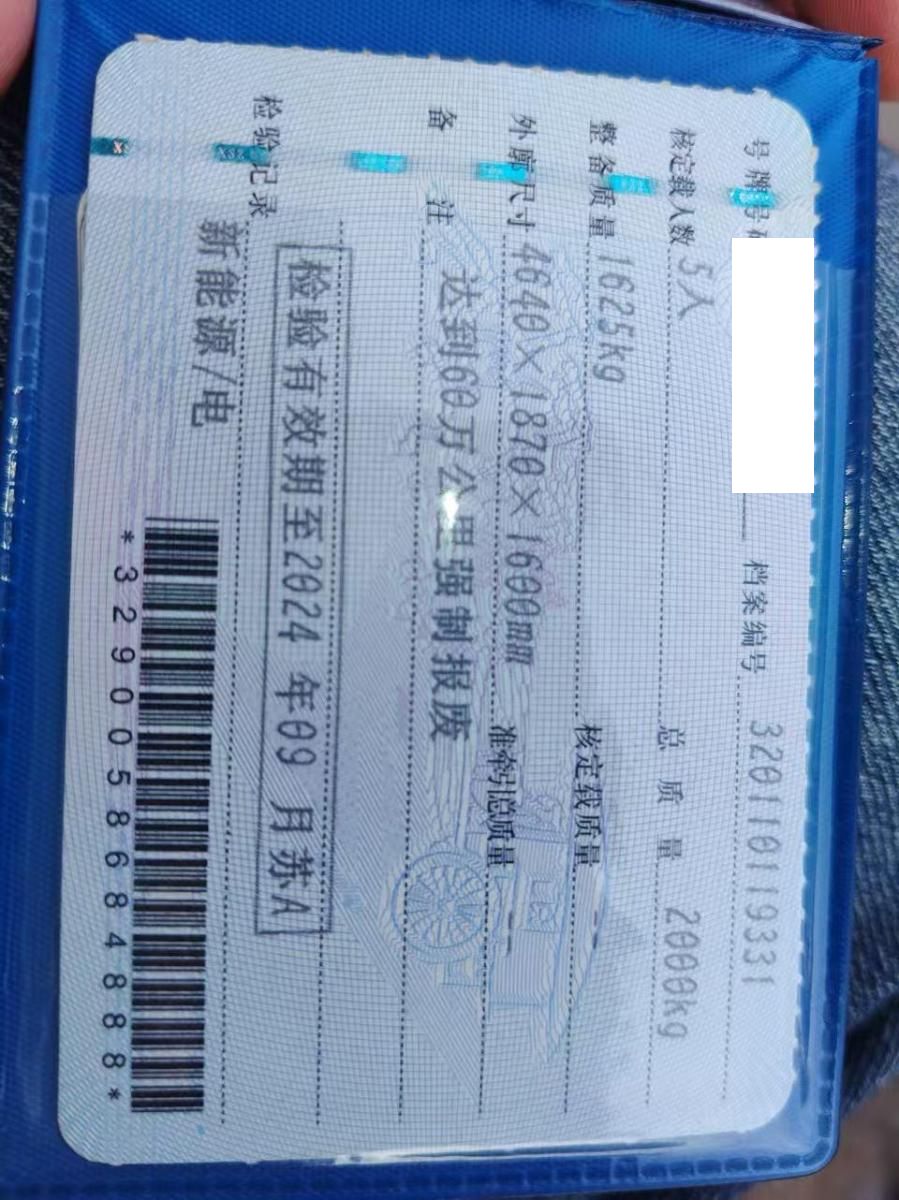 号牌号码 档案编号 320110119331
核定载人数 5人 总质量 2000kg
整备质量 1625kg 核定载质量
外廓尺寸 4640×1870×1600mm 准牵引总质量
备注 达到60万公里强制报废
检验记录 检验有效期至2024 年09 月苏A
新能源/电
*3290058684888*